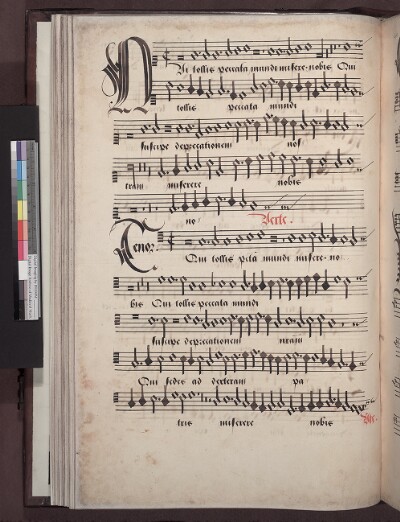 Qui tollis peccata mundi misere nobis Qui
tollis peccata mundi
suscipe deprecationem nos
tram miserere nobis
no Verte.
Tenor Qui tollis pcta mundi misere no
bis Qui tollis peccata mundi
suscipe deprecationem nram
Qui sedes ad dexteram pa
tris miserere nobis